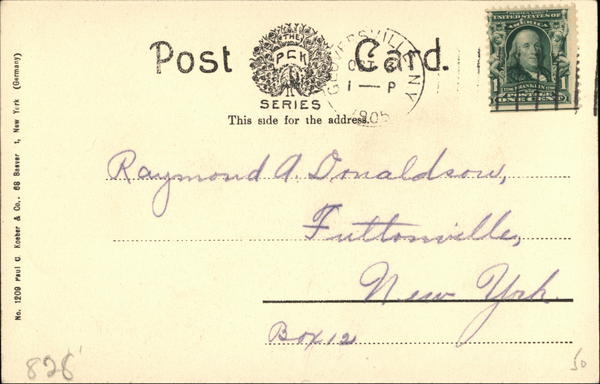 Post Card.
THE
PCK
SERIES
GLOVERSVILLE N.Y.
OCT
1—P
1905
UNITED STATES OF AMERICA
1 FRANKLIN 1
ONE CENT
This side for the address.
Raymond A. Donaldson,
Fultonville,
New York.
Box 12
No. 1209 Paul C. Koeber & Co., 68 Beaver t, New York (Germany)
828
50